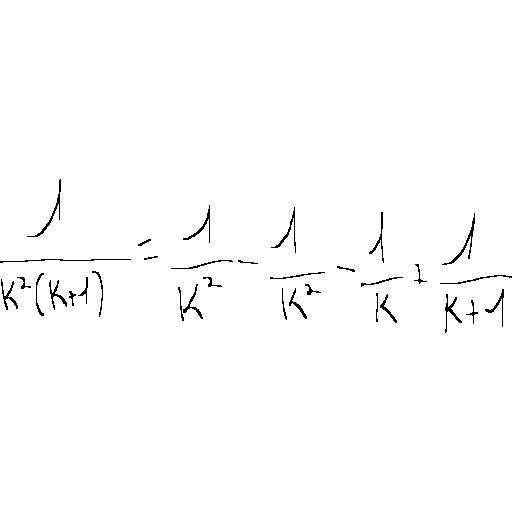 \frac{1}{K^2(K+1)} = \frac{1}{K^2} - \frac{1}{K^2} - \frac{1}{K} + \frac{1}{K+1}